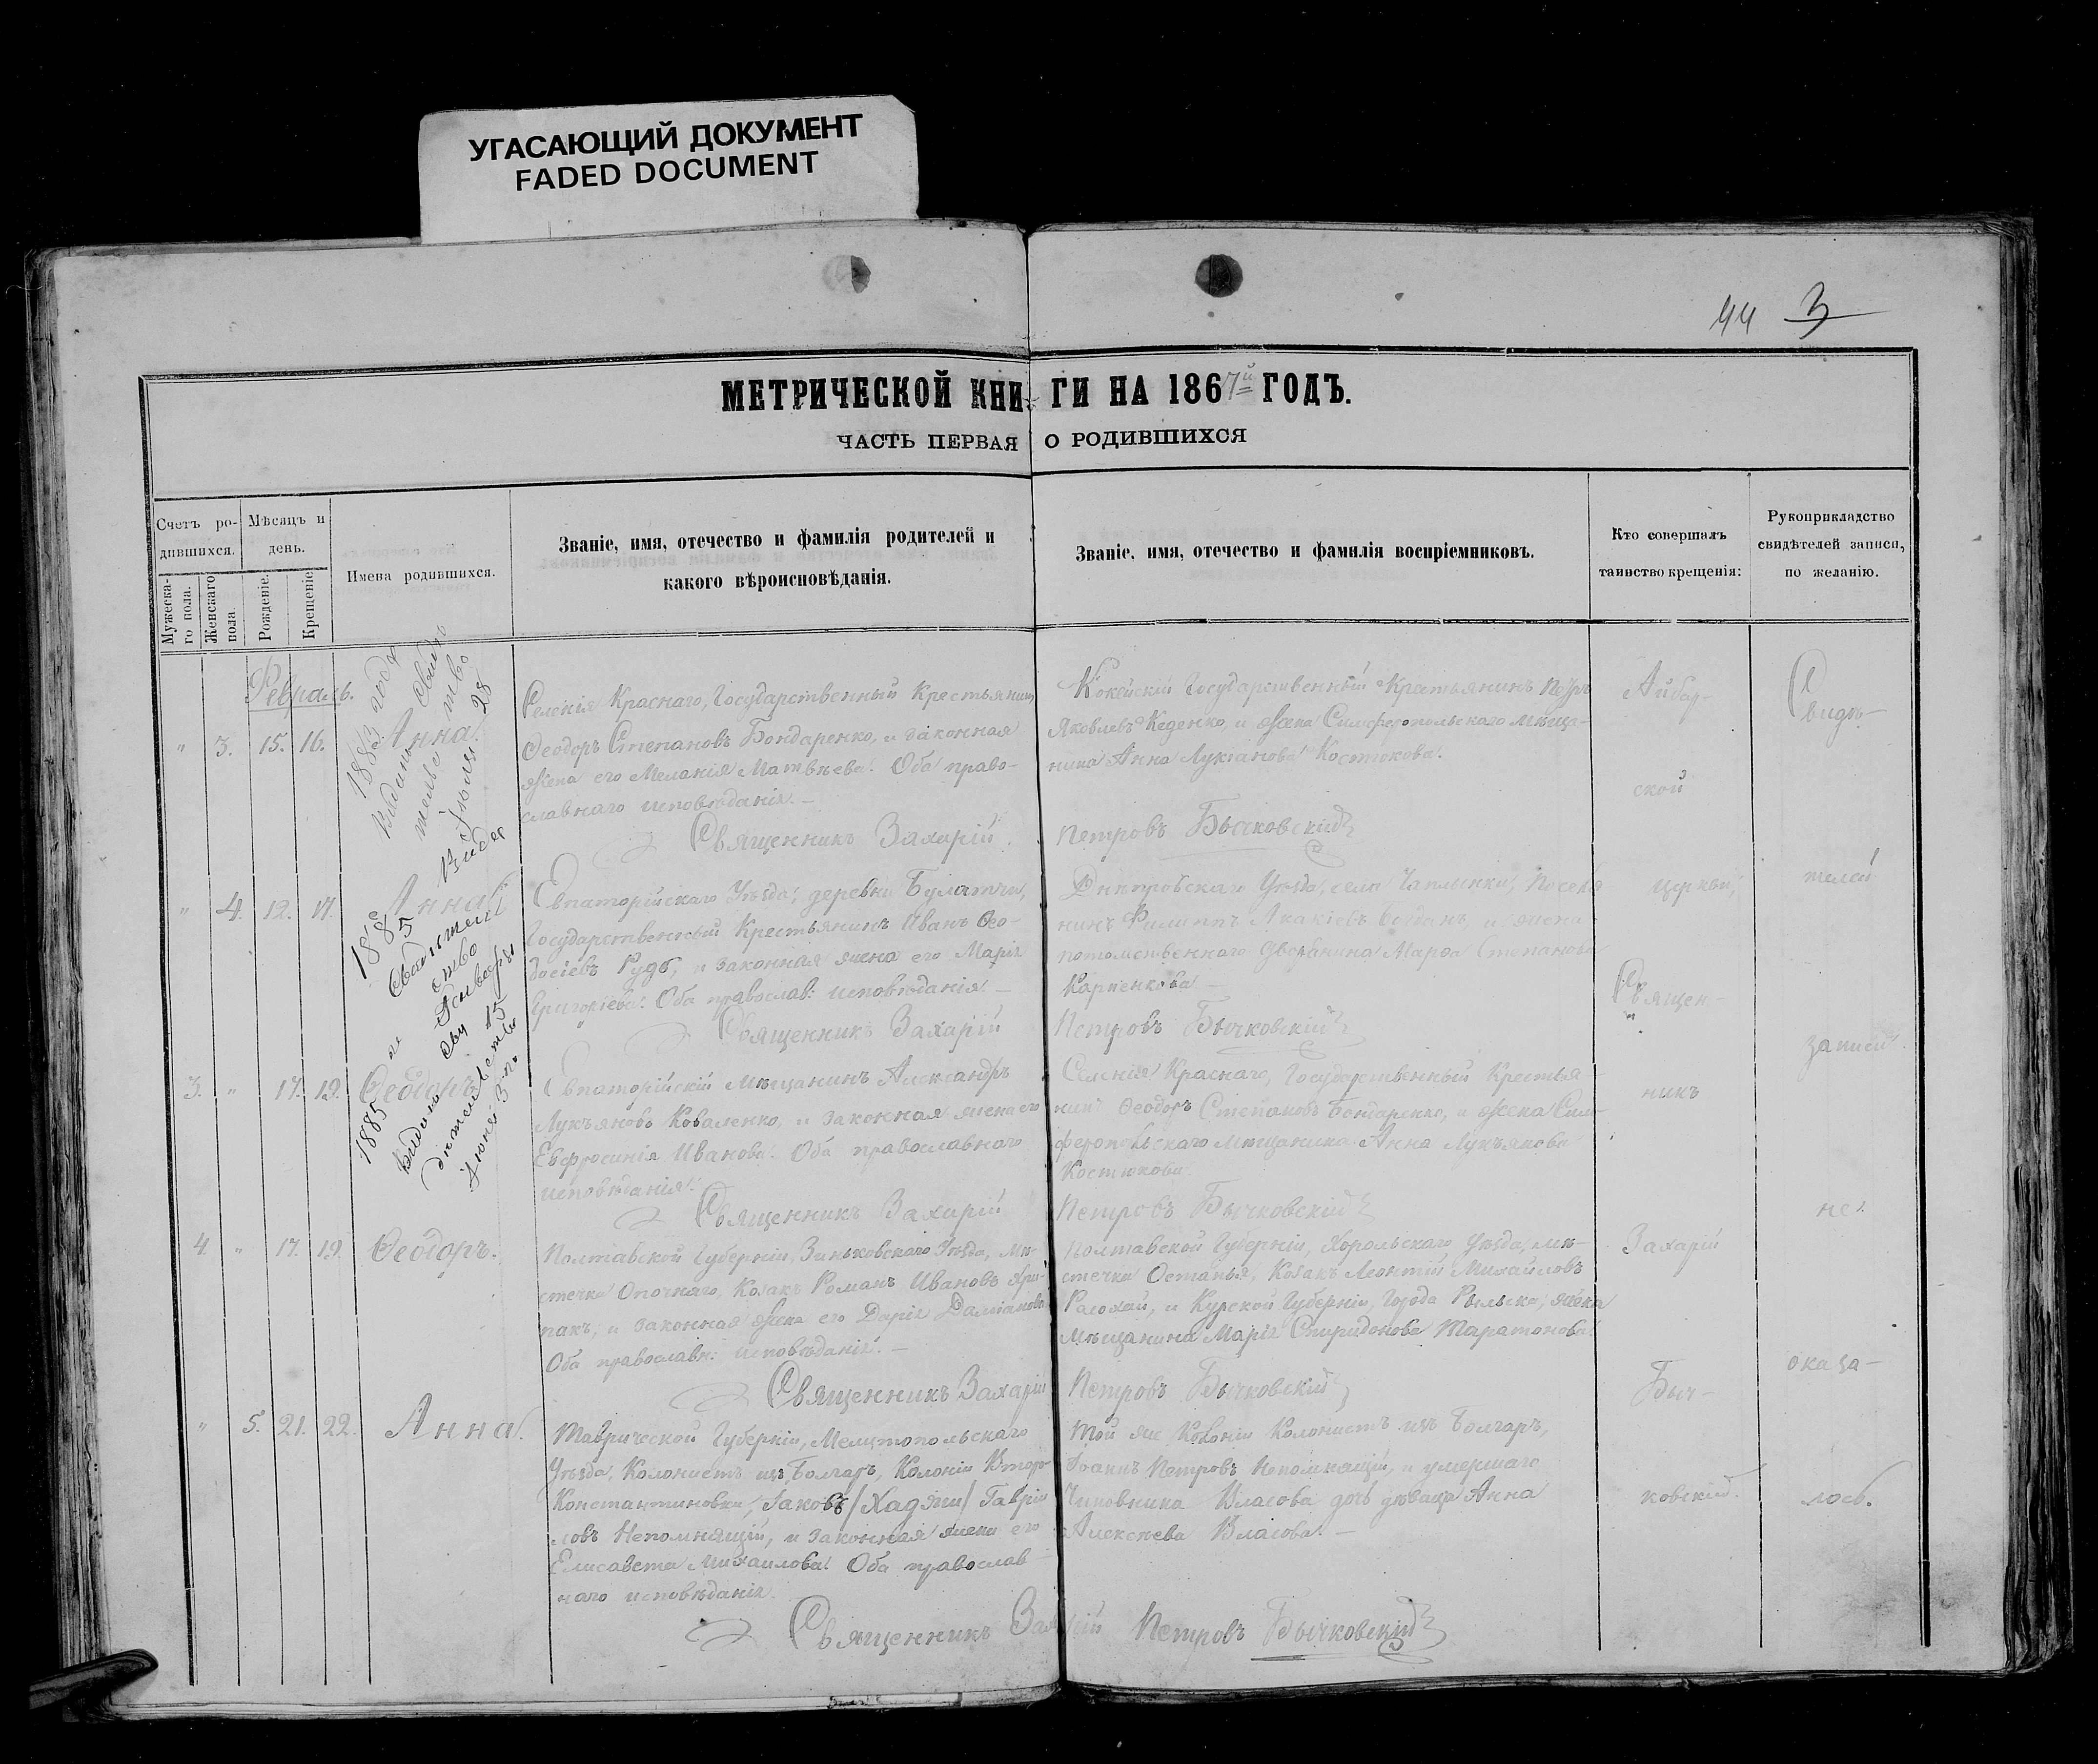 УГАСАЮЩИЙ ДОКУМЕНТ
FADED DOCUMENT
44 3
МЕТРИЧЕСКОЙ КНИГИ НА 1867й ГОДЪ.
ЧАСТЬ ПЕРВАЯ О РОДИВШИХСЯ
Счетъ ро-
дившихся.
Мужеска-
го пола.
Женскаго
пола
Мѣсяцъ и
день.
Рожденіе.
Крещеніе
Имена родившихся.
Званіе, имя, отечество и фамилія родителей и
какого вѣроисповѣданія.
Званіе, имя, отечество и фамилія воспріемниковъ.
Кто совершалъ
таинство крещенія:
Рукоприкладство
свидѣтелей записи,
по желанію.
Февраль.
" 3. 15. 16. Анна.
1883 года
Выдано свидѣ
тельство
Іюля 28
Селенія Краснаго, Государственный Крестьянинъ
Ѳеодоръ Степановъ Бондаренко, и законная
жена его Меланія Матвѣева. Оба право-
славнаго исповѣданія.—
Священникъ Захарій
Государственный Крестьянинъ Петръ
Яковлевъ и жена Симферопольскаго мѣща-
нина Анна Лукіанова Костюкова.
Петровъ Бычковскій
" 4. 12. 17. Анна
1885
Свидѣтель
ство
15
Евпаторійскаго Уѣзда, деревни Булатчи,
Государственный Крестьянинъ Иванъ Ѳео-
досіевъ Рудь, и законная жена его Марія
Оба православ: исповѣданія.—
Священникъ Захарій
Днѣпровскаго Уѣзда, села Чаплынки,
Филиппъ Акакіевъ Богданъ, и жена
потомственнаго Дворянина Марѳа Степанова
Карпенкова—
Петровъ Бычковскій
3. " 17. 19. Ѳеодоръ
1885
Выдано
Іюня 3
Евпаторійскій мѣщанинъ Александръ
Лукъяновъ Коваленко, и законная жена его
Евфросинія Иванова. Оба православнаго
исповѣданія.
Священникъ Захарій
Селенія Краснаго, Государственный Крестья-
нинъ Ѳеодоръ Степановъ Бондаренко, и жена Сим-
феропольскаго мѣщанина Анна Лукъянова
Костюкова.
Петровъ Бычковскій
4 " 17. 19. Ѳеодоръ.
Полтавской Губерніи, Зиньковскаго Уѣзда, мѣ-
стечка Опочнаго, Козакъ Романъ Ивановъ Хри-
пакъ, и законная жена его Дарія Даміанова
Оба православн: исповѣданія.—
Священникъ Захарій
Полтавской Губерніи, Хорольскаго Уѣзда, мѣ-
стечка Остапья, Козакъ Леонтій Михайловъ
и Курской Губерніи, Города Рыльска, жена
мѣщанина Марія Спиридонова Таратонова.
Петровъ Бычковскій
" 5. 21. 22. Анна.
Таврической Губерніи, Мелитопольскаго
Уѣзда, Колонистъ изъ Болгаръ, Колоніи Второ-
Константиновки, Іаковъ /Хаджи/ Гаврі
ловъ Непомнящій, и законная жена его
Елисавета Михаилова. Оба православ
наго исповѣданія.
Священникъ Захарій
Той же Колоніи Колонистъ изъ Болгаръ,
Іоаннъ Петровъ Непомнящій, и умершаго
Чиновника Власова дочь дѣвица Анна
Алексѣева Власова.—
Петровъ Бычковскій
Айбар-
ской
церкви,
Священ-
никъ
Захарій
Быч-
ковскій.
Свидѣ-
телей
записи
не
оказа-
лось.